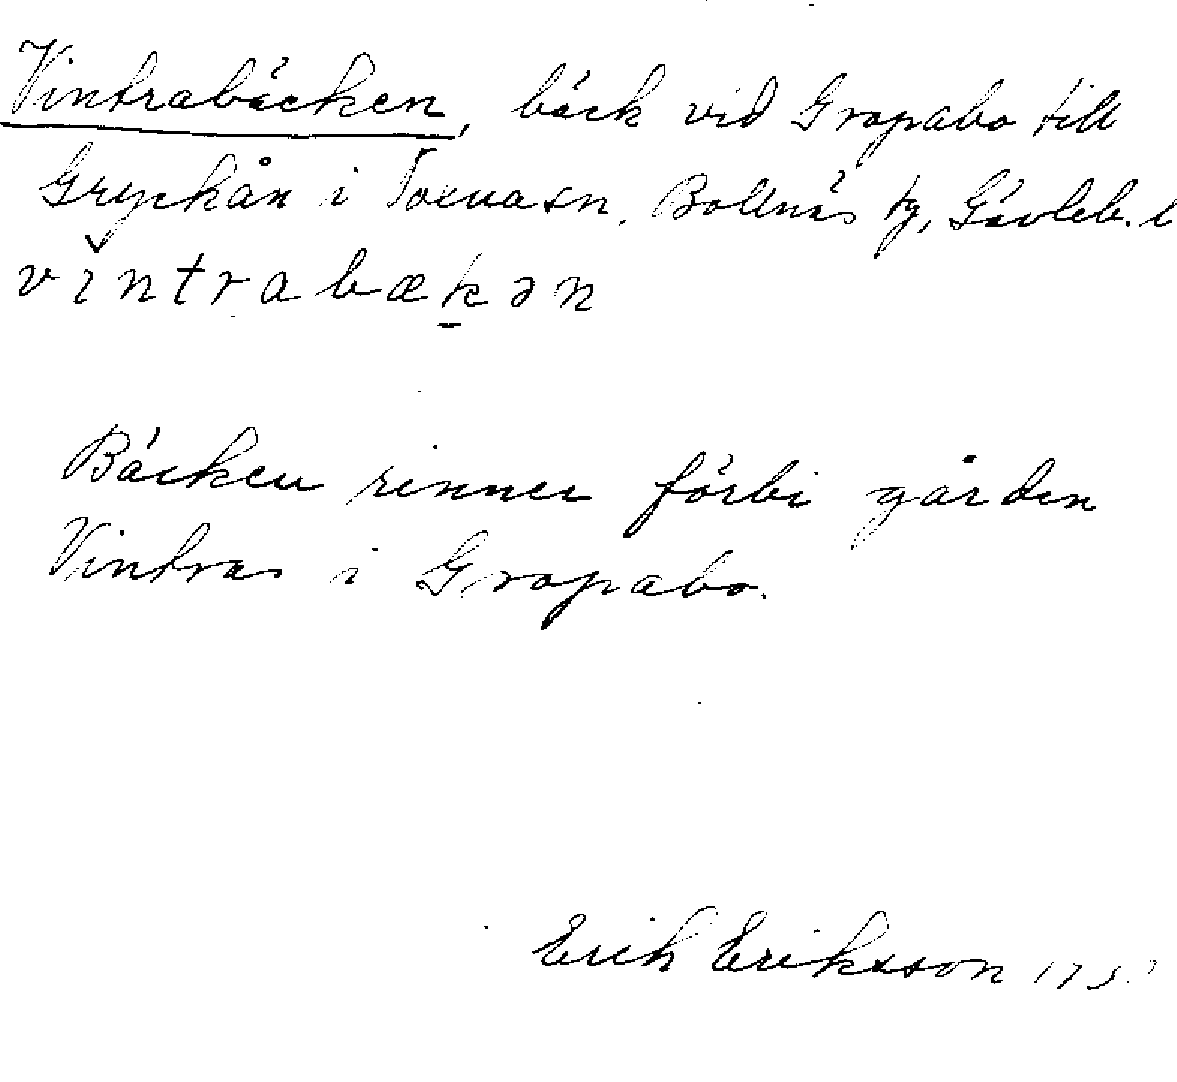 Vintrabäcken, bäck vid Gropabo till
Gryckån i Voxna sn. Bollnäs tg, Gävleb. l
vìntrabækən
Bäcken rinner förbi gården
Vintras i Gropabo.
Erik Eriksson